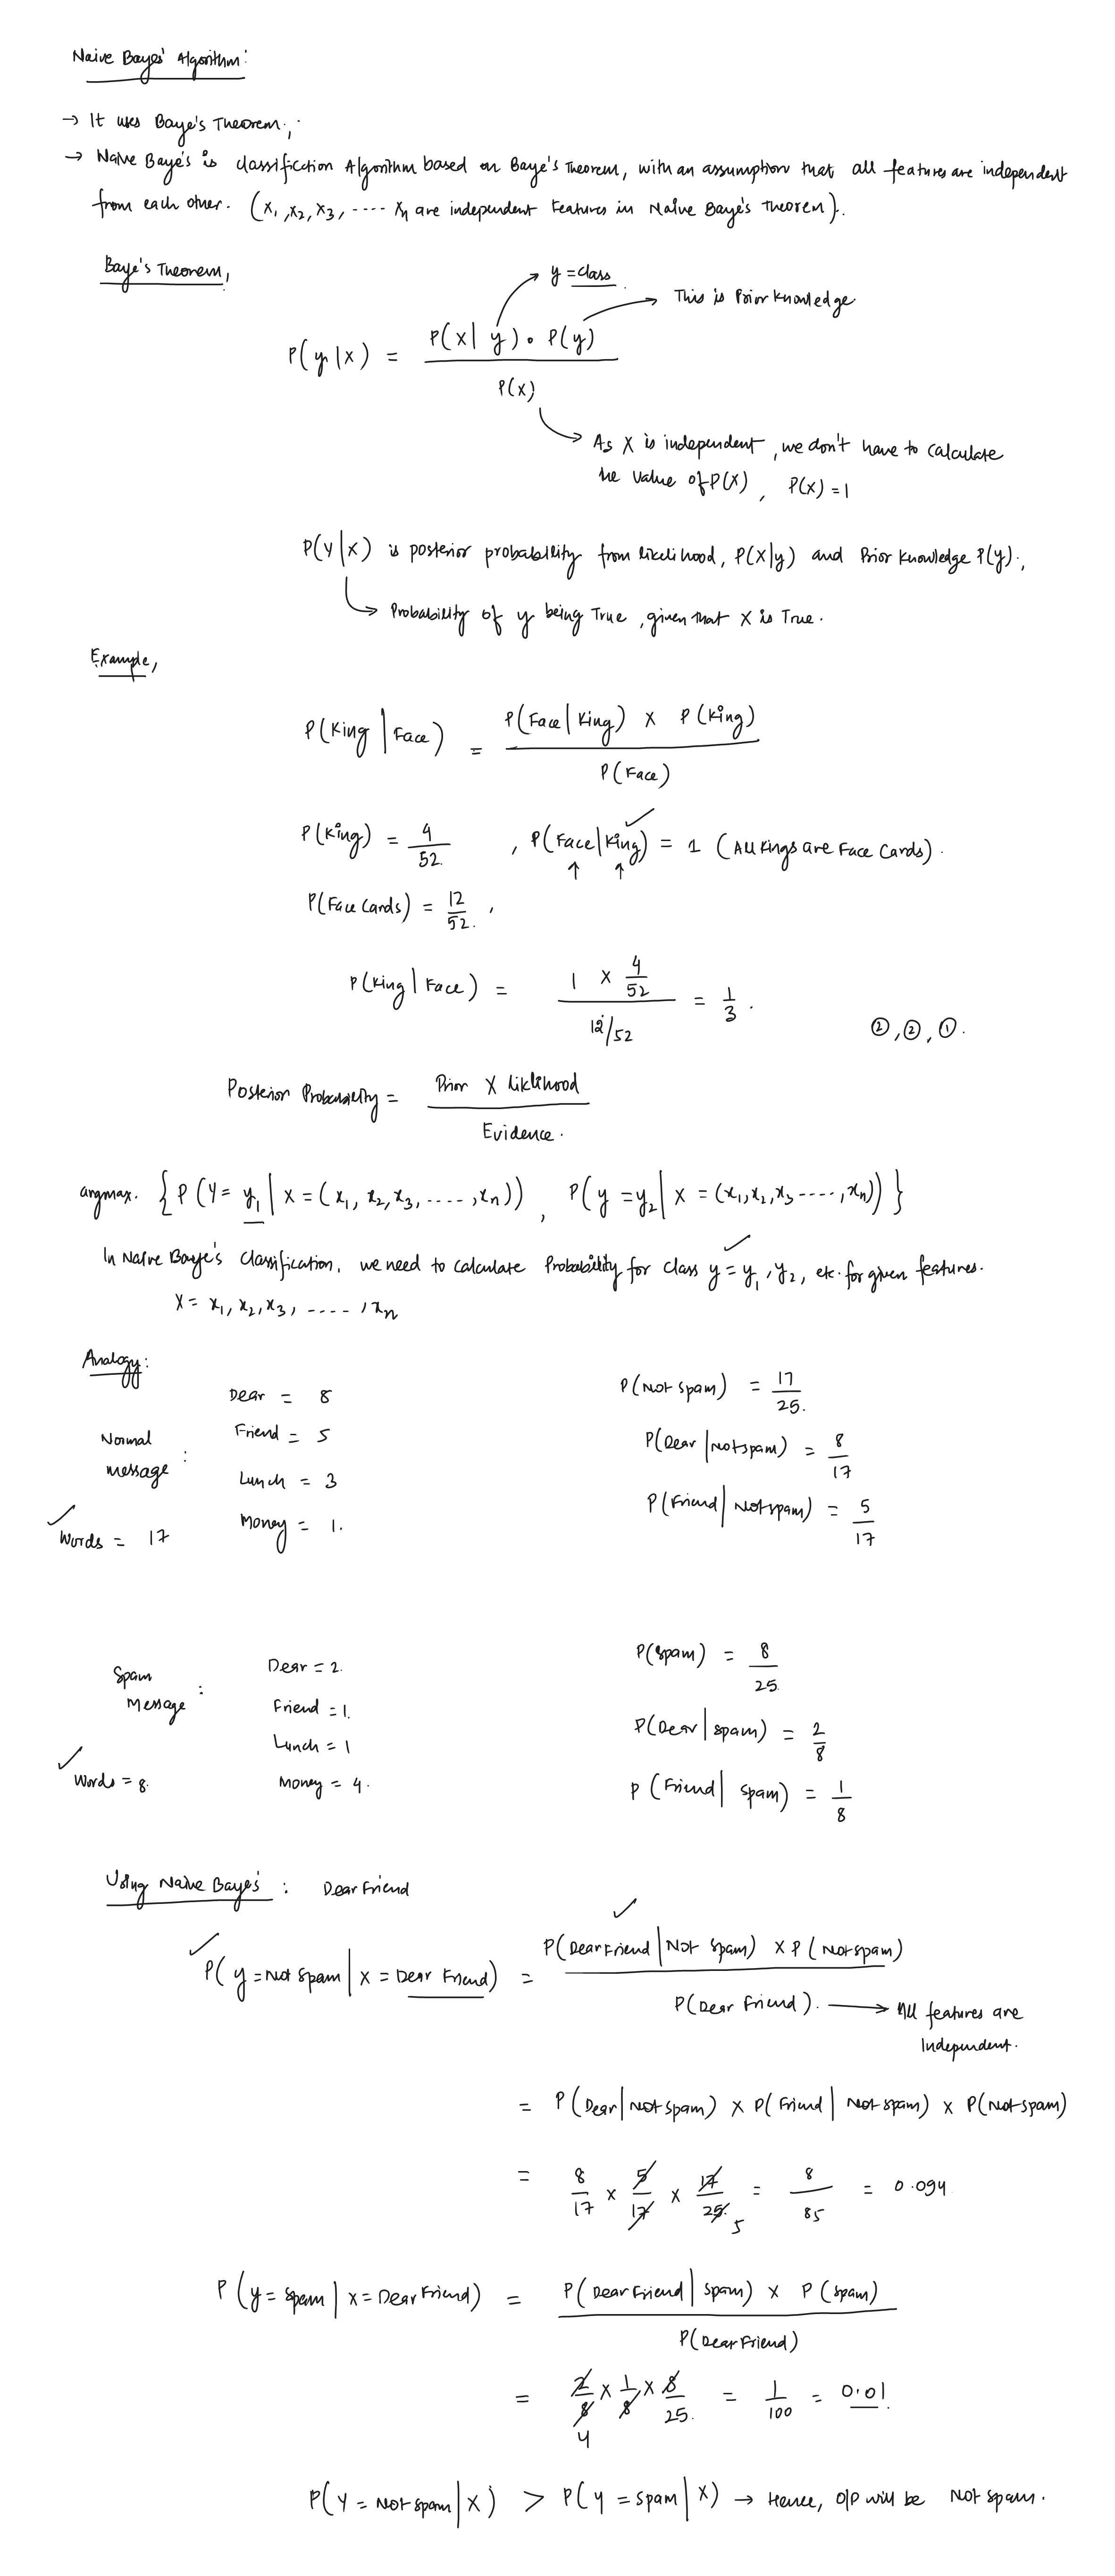 Naive Bayes' Algorithm:
→ It uses Baye's Theorem,
→ Naive Baye's is classification Algorithm based on Baye's Theorem, with an assumption that all features are independent
from each other. (x₁, x₂, x₃, ---- xₙ are independent Features in Naive Baye's Theorem).
Baye's Theorem,
y = class
This is Prior Knowledge
P(y|x) = P(x|y) • P(y) / P(x)
As X is independent, we don't have to calculate
the value of P(X), P(X) = 1
P(Y|X) is posterior probability from likelihood, P(X|y) and Prior Knowledge P(y).,
Probability of y being True, given that X is True.
Example,
P(King | Face) = P(Face | King) X P(King) / P(Face)
P(King) = 4/52 , P(Face|King) = 1 (All Kings are Face Cards).
P(Face Cards) = 12/52 ,
P(King | Face) = 1 X 4/52 / 12/52 = 1/3 .
②, ②, ①.
Posterior Probability = Prior X Liklihood / Evidence.
argmax. { P(Y = y₁ | X = (x₁, x₂, x₃, ....., xₙ)) , P(y = y₂ | X = (x₁, x₂, x₃ ----, xₙ)) }
In Naive Baye's Classification, we need to calculate Probability for class y = y₁, y₂, etc. for given features.
X = x₁, x₂, x₃, ----, xₙ
Analogy:
Dear = 8
P(Not spam) = 17/25.
Normal message :
Friend = 5
P(Dear | Not spam) = 8/17
Lunch = 3
P(Friend | Not spam) = 5/17
Words = 17
Money = 1.
Spam Message :
Dear = 2.
P(spam) = 8/25
Friend = 1.
P(Dear | spam) = 2/8
Lunch = 1
Words = 8.
Money = 4.
P(Friend | spam) = 1/8
Using Naive Baye's : Dear Friend
P(y = Not spam | X = Dear Friend) = P(Dear Friend | Not spam) X P(Not spam) / P(Dear Friend). → All features are
Independent.
= P(Dear | Not spam) X P(Friend | Not spam) X P(Not spam)
= 8/17 X 5/17 X 17/25 5 = 8/85 = 0.094
P(y = spam | X = Dear Friend) = P(Dear Friend | spam) X P(spam) / P(Dear Friend)
= 2/8 4 X 1/8 X 8/25. = 1/100 = 0.01.
P(Y = Not spam | X) > P(y = spam | X) → Hence, O/P will be Not spam.